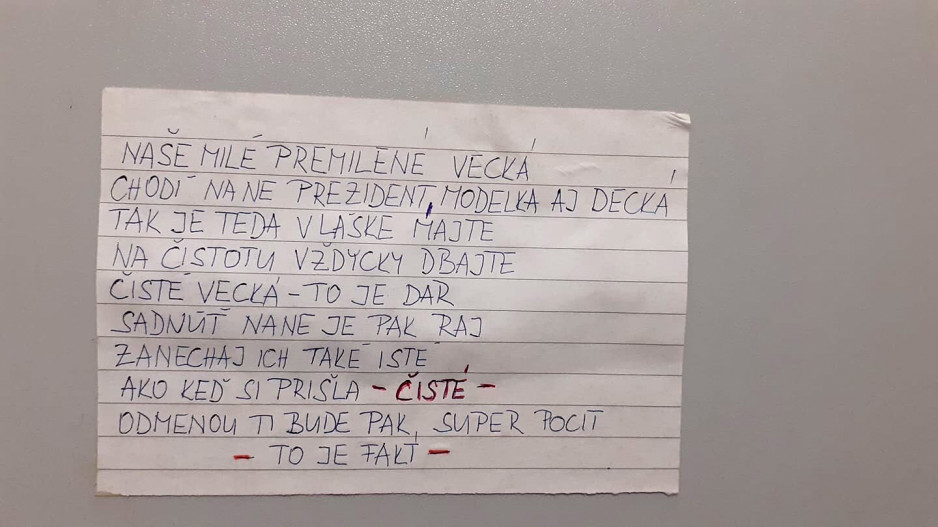 NAŠE MILÉ PREMILÉNE VECKÁ
CHODÍ NA NE PREZIDENT, MODELKA AJ DECKÁ
TAK JE TEDA V LÁSKE MAJTE
NA ČISTOTU VŽDYCKY DBAJTE
ČISTÉ VECKÁ - TO JE DAR
SADNÚŤ NA NE JE PAK RAJ
ZANECHAJ ICH TAKÉ ISTÉ
AKO KEĎ SI PRIŠLA - ČISTÉ -
ODMENOU TI BUDE PAK, SUPER POCIT
- TO JE FAKT -